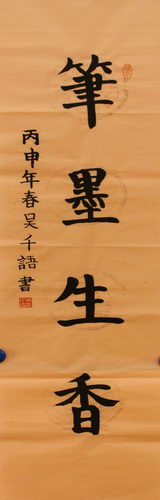 筆墨生香
丙申年春吴千語書